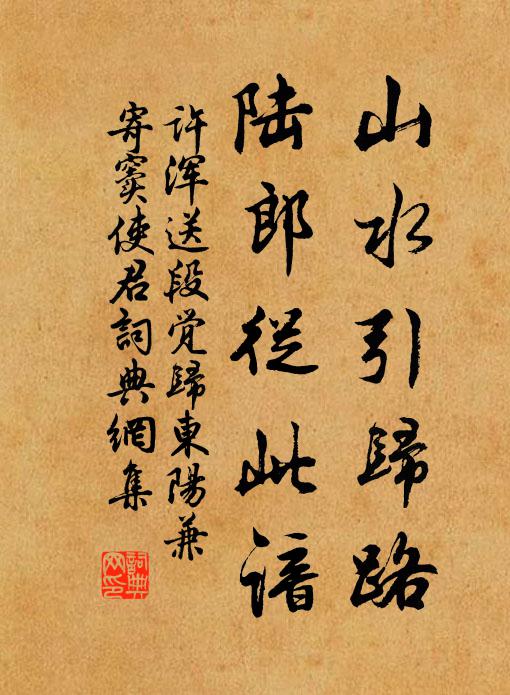 山水引歸路
陆郎從此谙
许浑送段觉歸東陽兼
寄窦使君詞典網集
詞典
网印